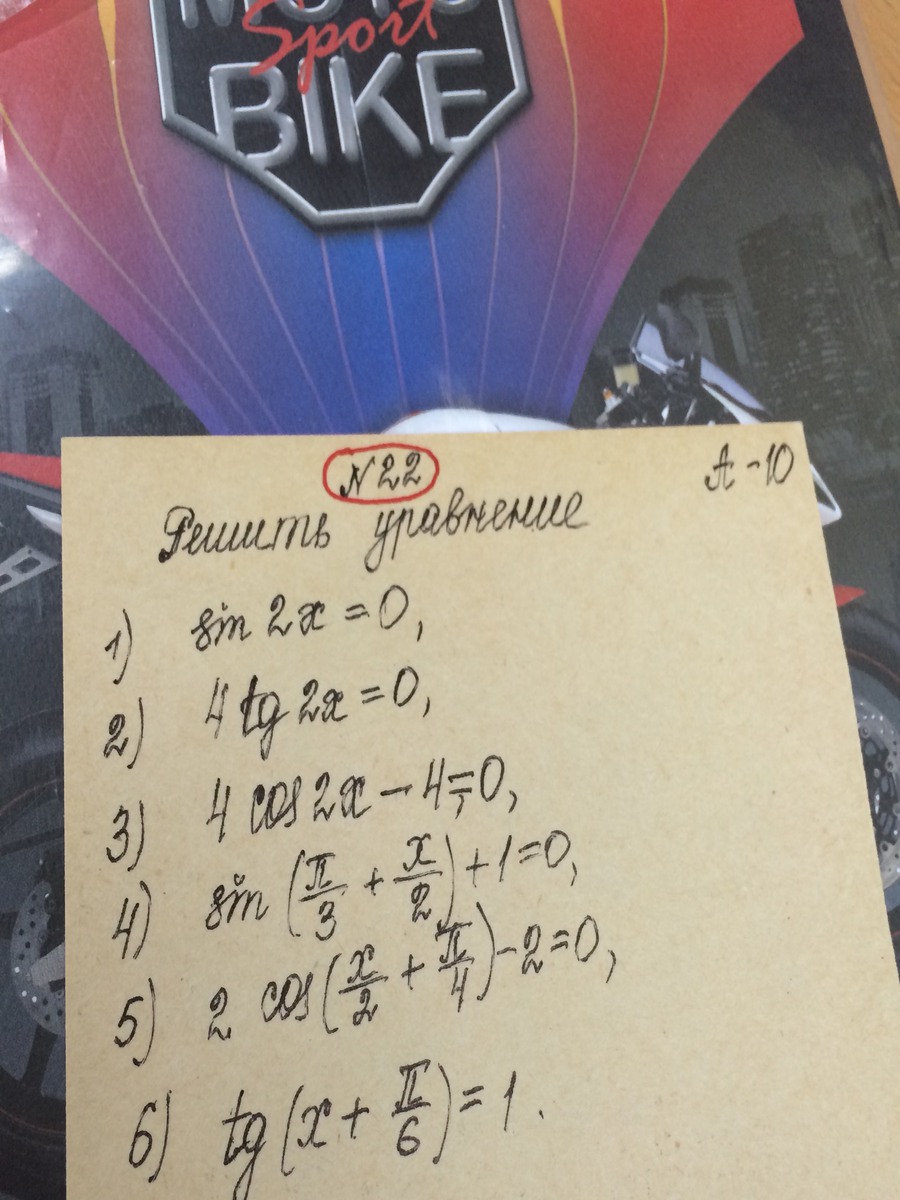 MOTO
Sport
BIKE
№22
A-10
Решить уравнение
1) sin 2x = 0,
2) 4 tg 2x = 0,
3) 4 cos 2x - 4 = 0,
4) sin (π/3 + x/2) + 1 = 0,
5) 2 cos (x/2 + π/4) - 2 = 0,
6) tg (x + π/6) = 1.